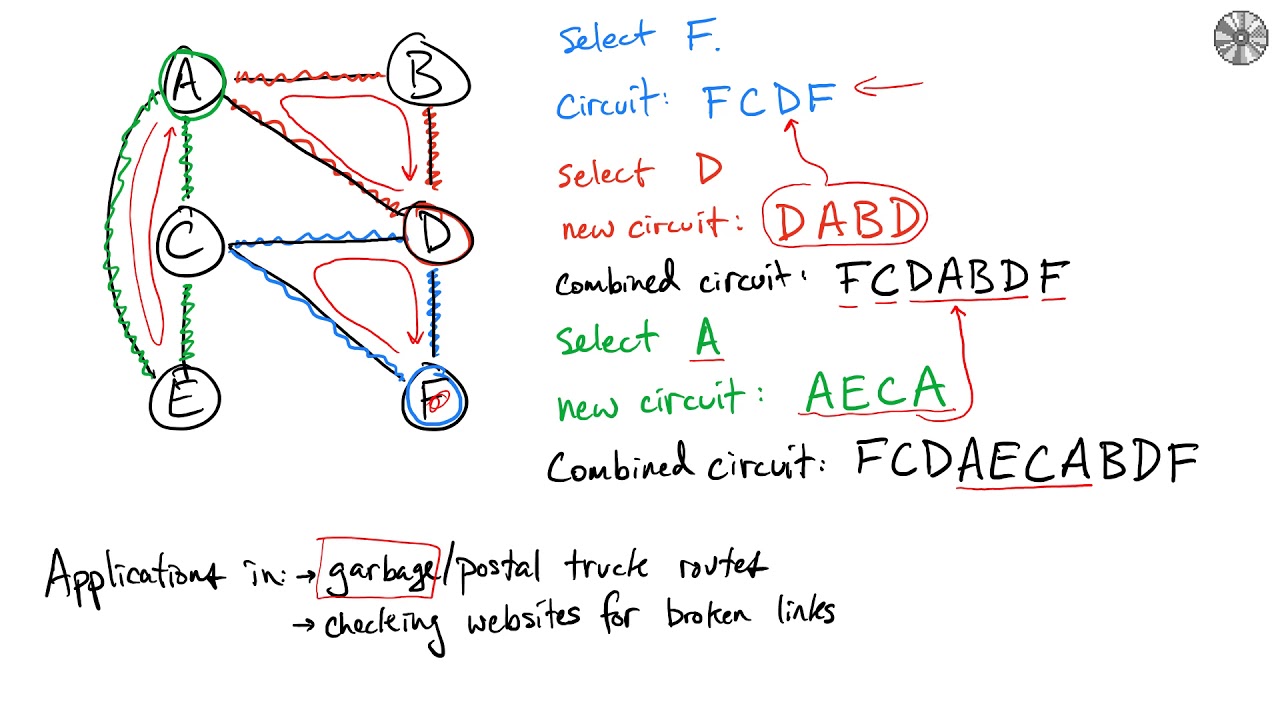 A
B
C
D
E
F
Select F.
Circuit: FCDF
Select D
new circuit: DABD
Combined circuit: FCDABDF
Select A
new circuit: AECA
Combined circuit: FCDAECABDF
Applications in: → garbage/postal truck routes
→ checking websites for broken links